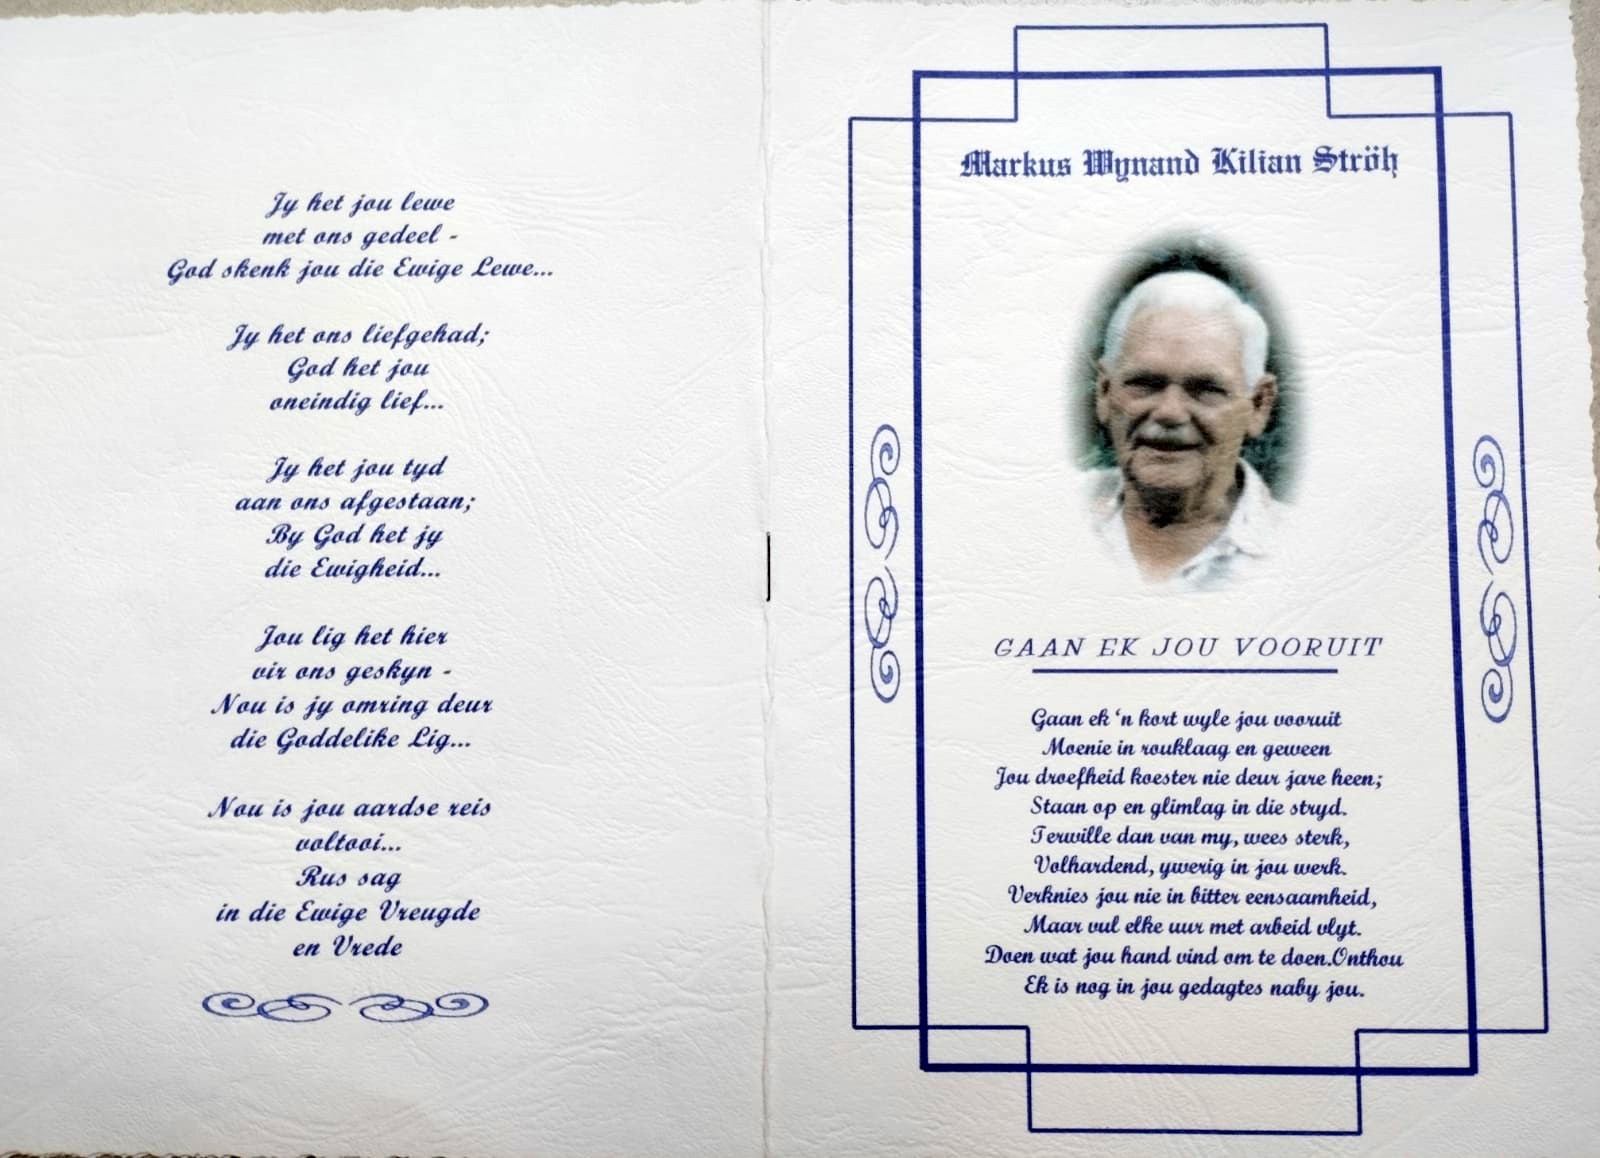 Jy het jou lewe
met ons gedeel -
God skenk jou die Ewige Lewe...
Jy het ons liefgehad;
God het jou
oneindig lief...
Jy het jou tyd
aan ons afgestaan;
By God het jy
die Ewigheid...
Jou lig het hier
vir ons geskyn -
Nou is jy omring deur
die Goddelike Lig...
Nou is jou aardse reis
voltooi...
Rus sag
in die Ewige Vreugde
en Vrede
Markus Wynand Kilian Ströh
GAAN EK JOU VOORUIT
Gaan ek 'n kort wyle jou vooruit
Moenie in rouklaag en geween
Jou droefheid koester nie deur jare heen;
Staan op en glimlag in die stryd.
Terwille dan van my, wees sterk,
Volhardend, ywerig in jou werk.
Verknies jou nie in bitter eensaamheid,
Maar vul elke uur met arbeid vlyt.
Doen wat jou hand vind om te doen.Onthou
Ek is nog in jou gedagtes naby jou.